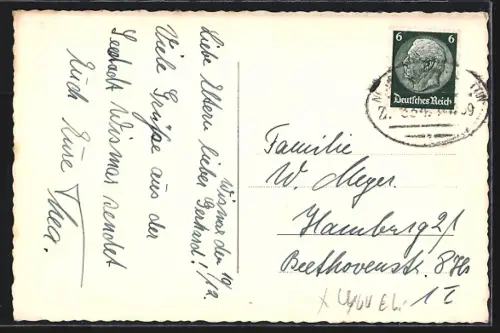 Wismar den 10/12.
Liebe Eltern lieber Gerhard!
Viele Grüße aus der
Seestadt Wismar sendet
Euch Eure Thea.
6 6
Deutsches Reich
Familie
W. Meyer.
Hamburg 21
Beethovenstr. 8 Hs
1 I